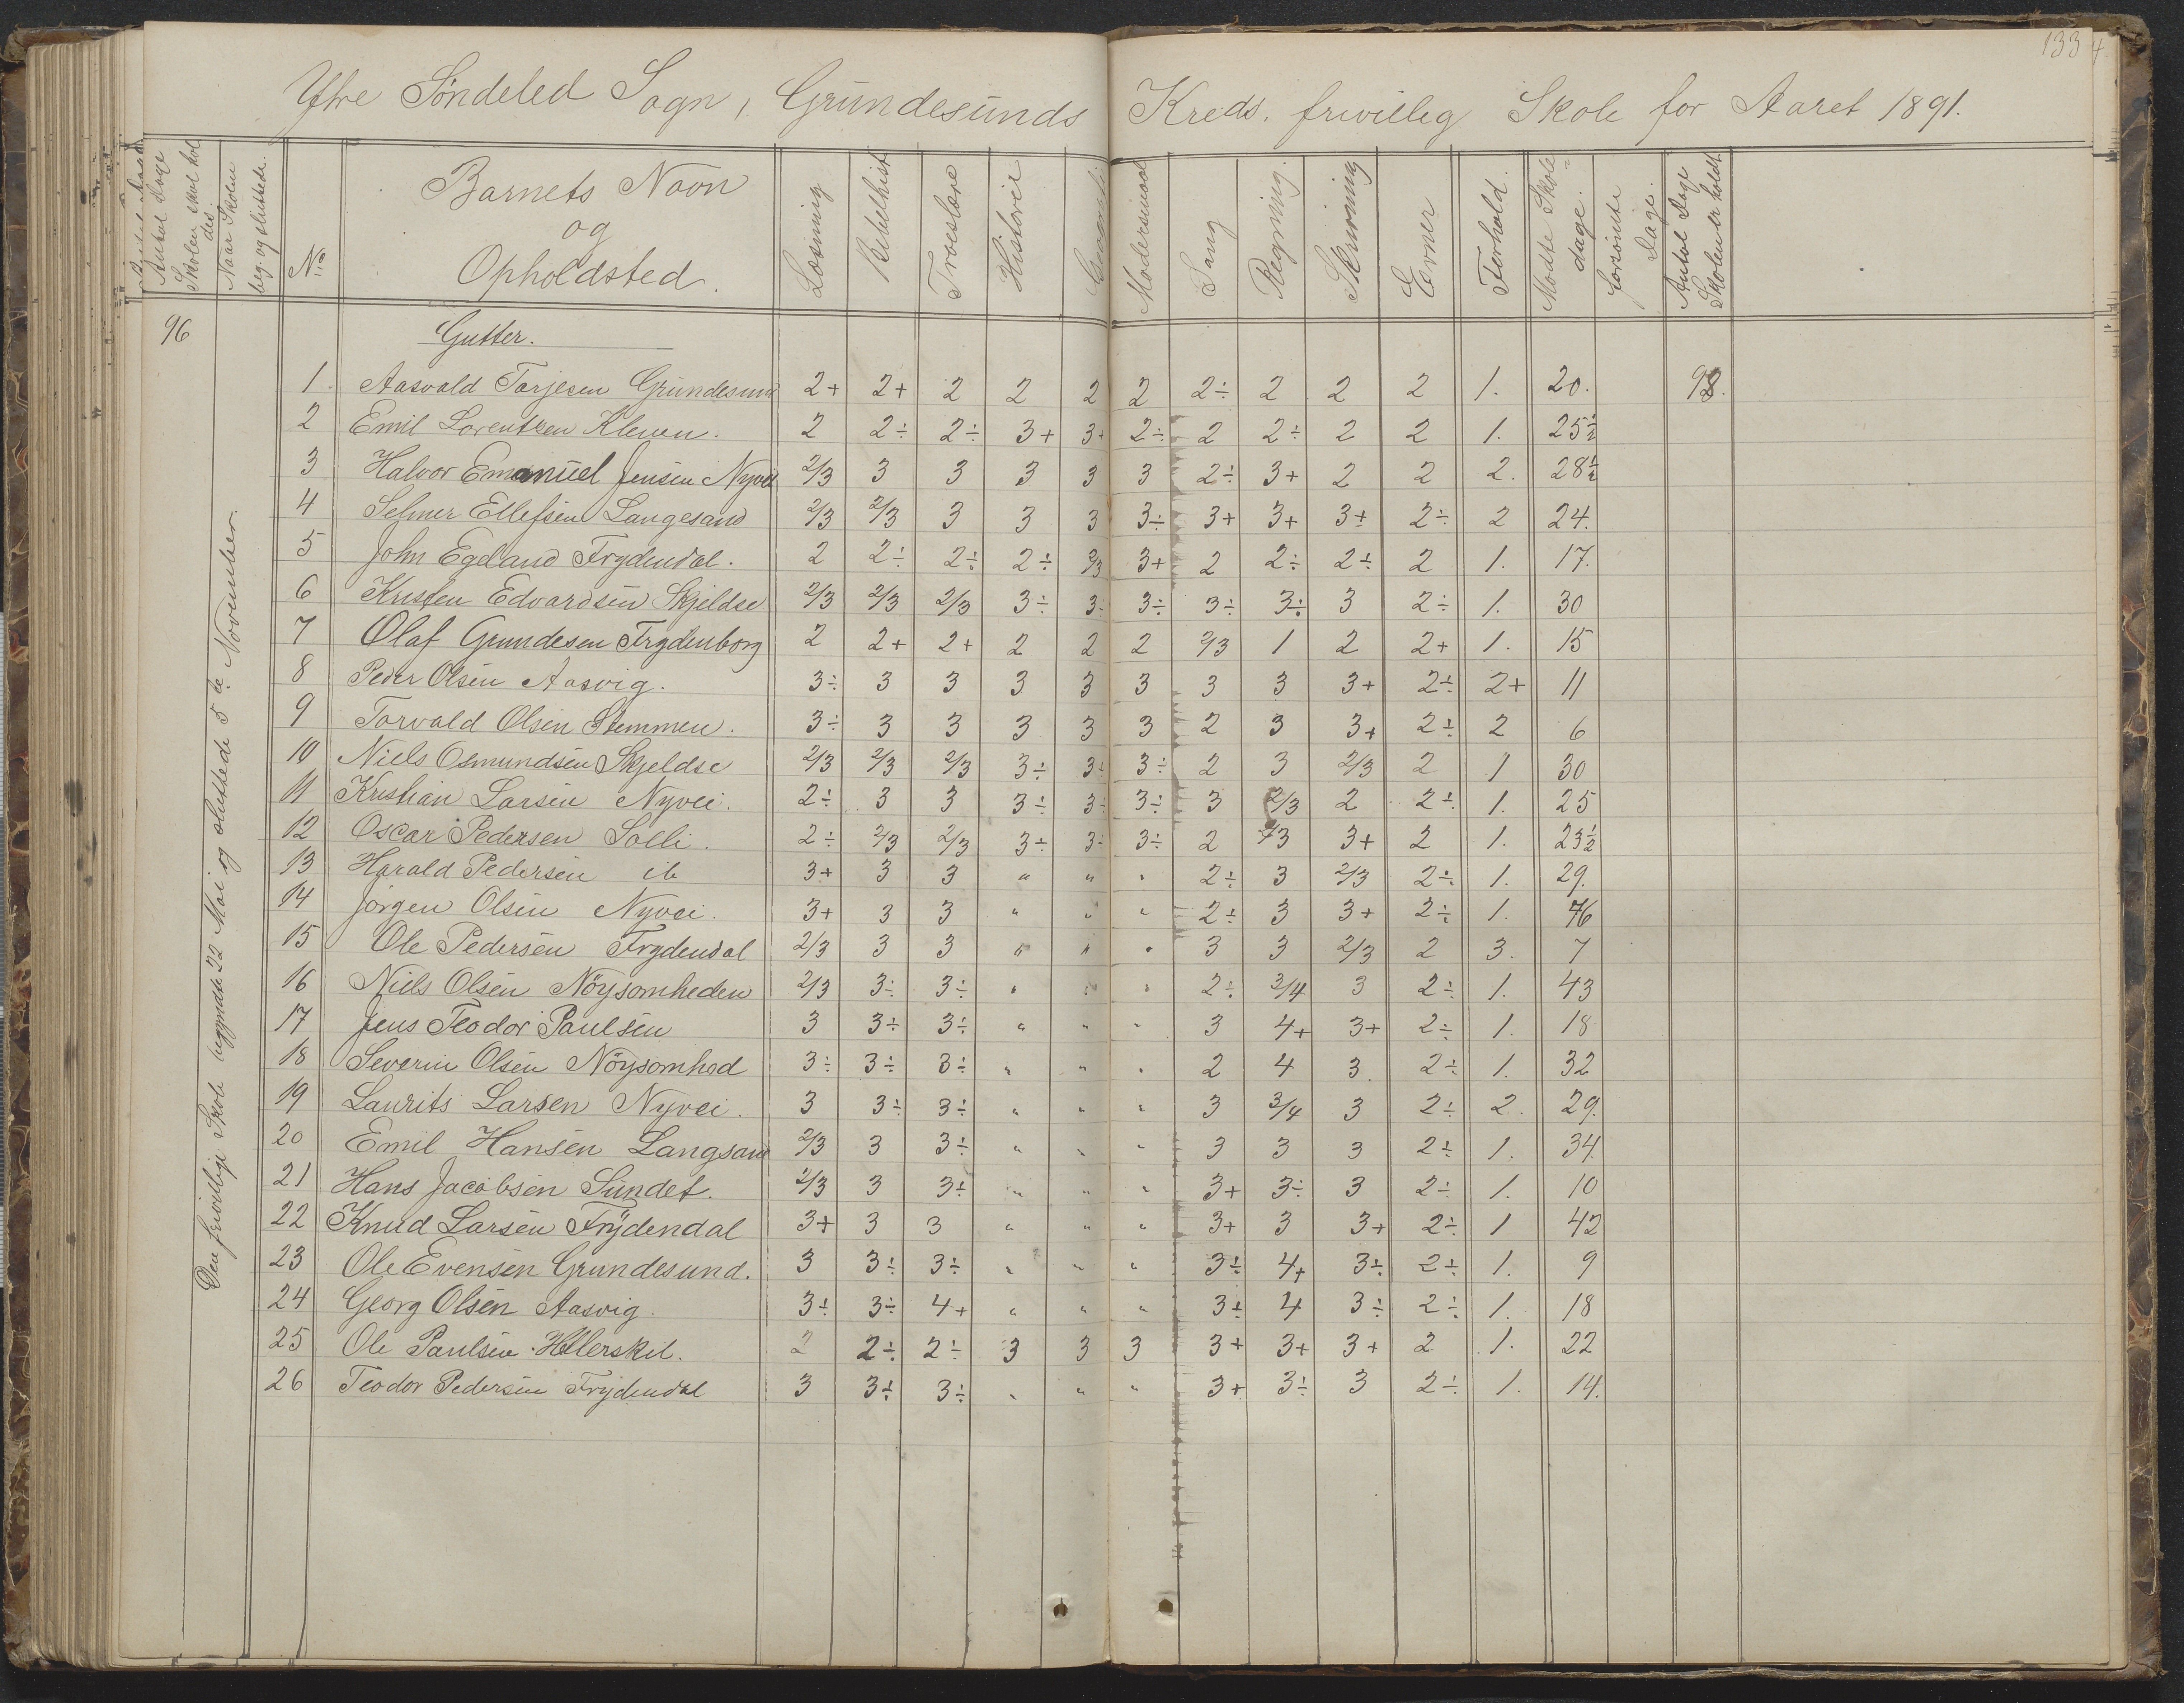 133
Ytre Söndeled Sogn, Grundesunds Kreds. frivillig Skole for Aaret 1891.
Antal Dage Skolen skol hol des
Naar Skolen beg. og sluttede.
No
Barnets Navn og Opholdsted.
Læsning
Bibelhist
Troeslære
Historie
Geografi
Modersmaal
Sang
Regning.
Skrivning
Evner
Forhold.
Mødte Skole dage.
Forsömte Dage.
Antal Dage Skolen er holdt.
96
Den frivillige Skole begyndte 22 Mai og sluttede 5te November.
Gutter.
1 Aasvald Tarjesen Grundesund 2+ 2+ 2 2 2 2 2÷ 2 2 2 1. 20. 98.
2 Emil Lorentzen Kleven. 2 2÷ 2÷ 3+ 3+ 2÷ 2 2÷ 2 2 1. 25½
3 Halvor Emanuel Jensen Nyvei 2/3 3 3 3 3 3 2÷ 3+ 2 2 2. 28½
4 Selmer Ellefsen Langesand 2/3 2/3 3 3 3 3÷ 3+ 3+ 3+ 2÷ 2 24.
5 John Egeland Frydendal. 2 2÷ 2÷ 2÷ 2/3 3+ 2 2÷ 2÷ 2 1. 17.
6 Kristen Edvardsen Skjeldsø 2/3 2/3 2/3 3÷ 3÷ 3÷ 3÷ 3÷ 3 2÷ 1. 30
7 Olaf Grundesen Frydenborg 2 2+ 2+ 2 2 2 2/3 1 2 2+ 1. 15
8 Peder Olsen Aasvig. 3÷ 3 3 3 3 3 3 3 3+ 2÷ 2+ 11
9 Torvald Olsen Stemmen. 3÷ 3 3 3 3 3 2 3 3+ 2÷ 2 6
10 Niels Osmundsen Skjeldsø 2/3 2/3 2/3 3÷ 3÷ 3÷ 2 3 2/3 2 1 30
11 Kristian Larsen Nyvei. 2÷ 3 3 3÷ 3÷ 3÷ 3 2/3 2 2÷ 1. 25
12 Oscar Pedersen Solli. 2÷ 2/3 2/3 3÷ 3÷ 3÷ 2 2/3 3+ 2 1. 23½
13 Harald Pedersen ib 3+ 3 3 " " " 2÷ 3 2/3 2÷ 1. 29.
14 Jörgen Olsen Nyvei. 3+ 3 3 " " " 2÷ 3 3+ 2÷ 1. 46
15 Ole Pedersen Frydendal 2/3 3 3 " " " 3 3 2/3 2 3. 7
16 Niels Olsen Nöysomheden 2/3 3÷ 3÷ " " " 2÷ 3/4 3 2÷ 1. 43
17 Jens Teodor Paulsen 3 3÷ 3÷ " " " 3 4+ 3+ 2÷ 1. 18
18 Severin Olsen Nöysomhed 3÷ 3÷ 3÷ " " " 2 4 3. 2÷ 1. 32
19 Laurits Larsen Nyvei. 3 3÷ 3÷ " " " 3 3/4 3 2÷ 2. 29.
20 Emil Hansen Langsand 2/3 3 3÷ " " " 3 3 3 2÷ 1. 34.
21 Hans Jacobsen Sundet. 2/3 3 3÷ " " " 3+ 3÷ 3 2÷ 1. 10
22 Knud Larsen Frydendal 3+ 3 3 " " " 3+ 3 3+ 2÷ 1 42
23 Ole Evensen Grundesund. 3 3÷ 3÷ " " " 3÷ 4+ 3÷ 2÷ 1. 9
24 Georg Olsen Aasvig. 3÷ 3÷ 4+ " " " 3÷ 4 3÷ 2÷ 1. 18
25 Ole Paulsen Hellerskil. 2 2÷ 2÷ 3 3 3 3+ 3+ 3+ 2 1. 22
26 Teodor Pedersen Frydendal 3 3÷ 3÷ " " " 3+ 3÷ 3 2÷ 1. 14.